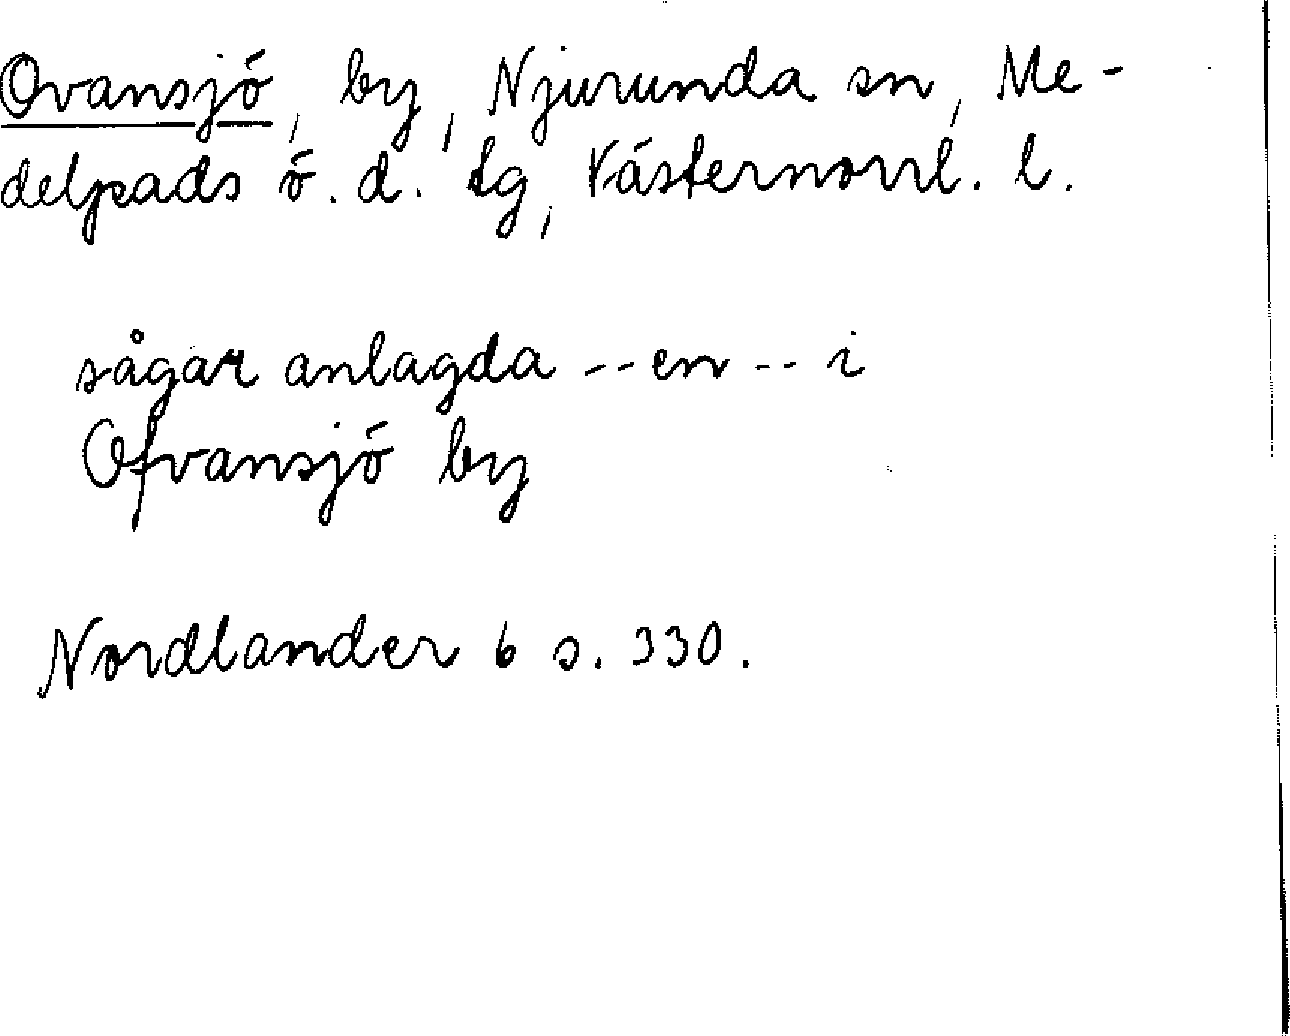 Ovansjö, by, Njurunda sn, Me-
delpads ö. d. tg, Västernorrl. l.
sågar anlagda -- en -- i
Ofvansjö by
Nordlander 6 s. 330.